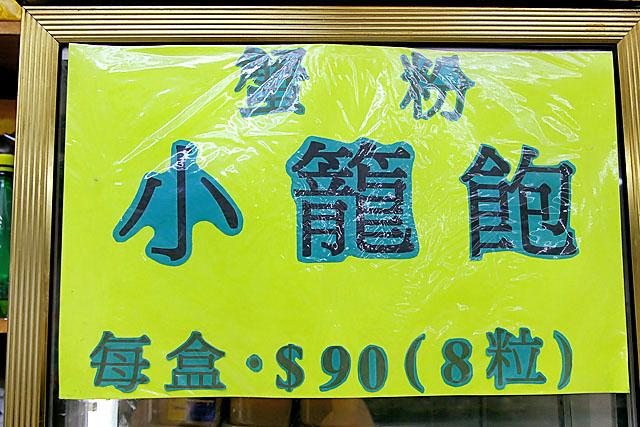 蟹粉
小籠飽
每盒·$90(8粒)